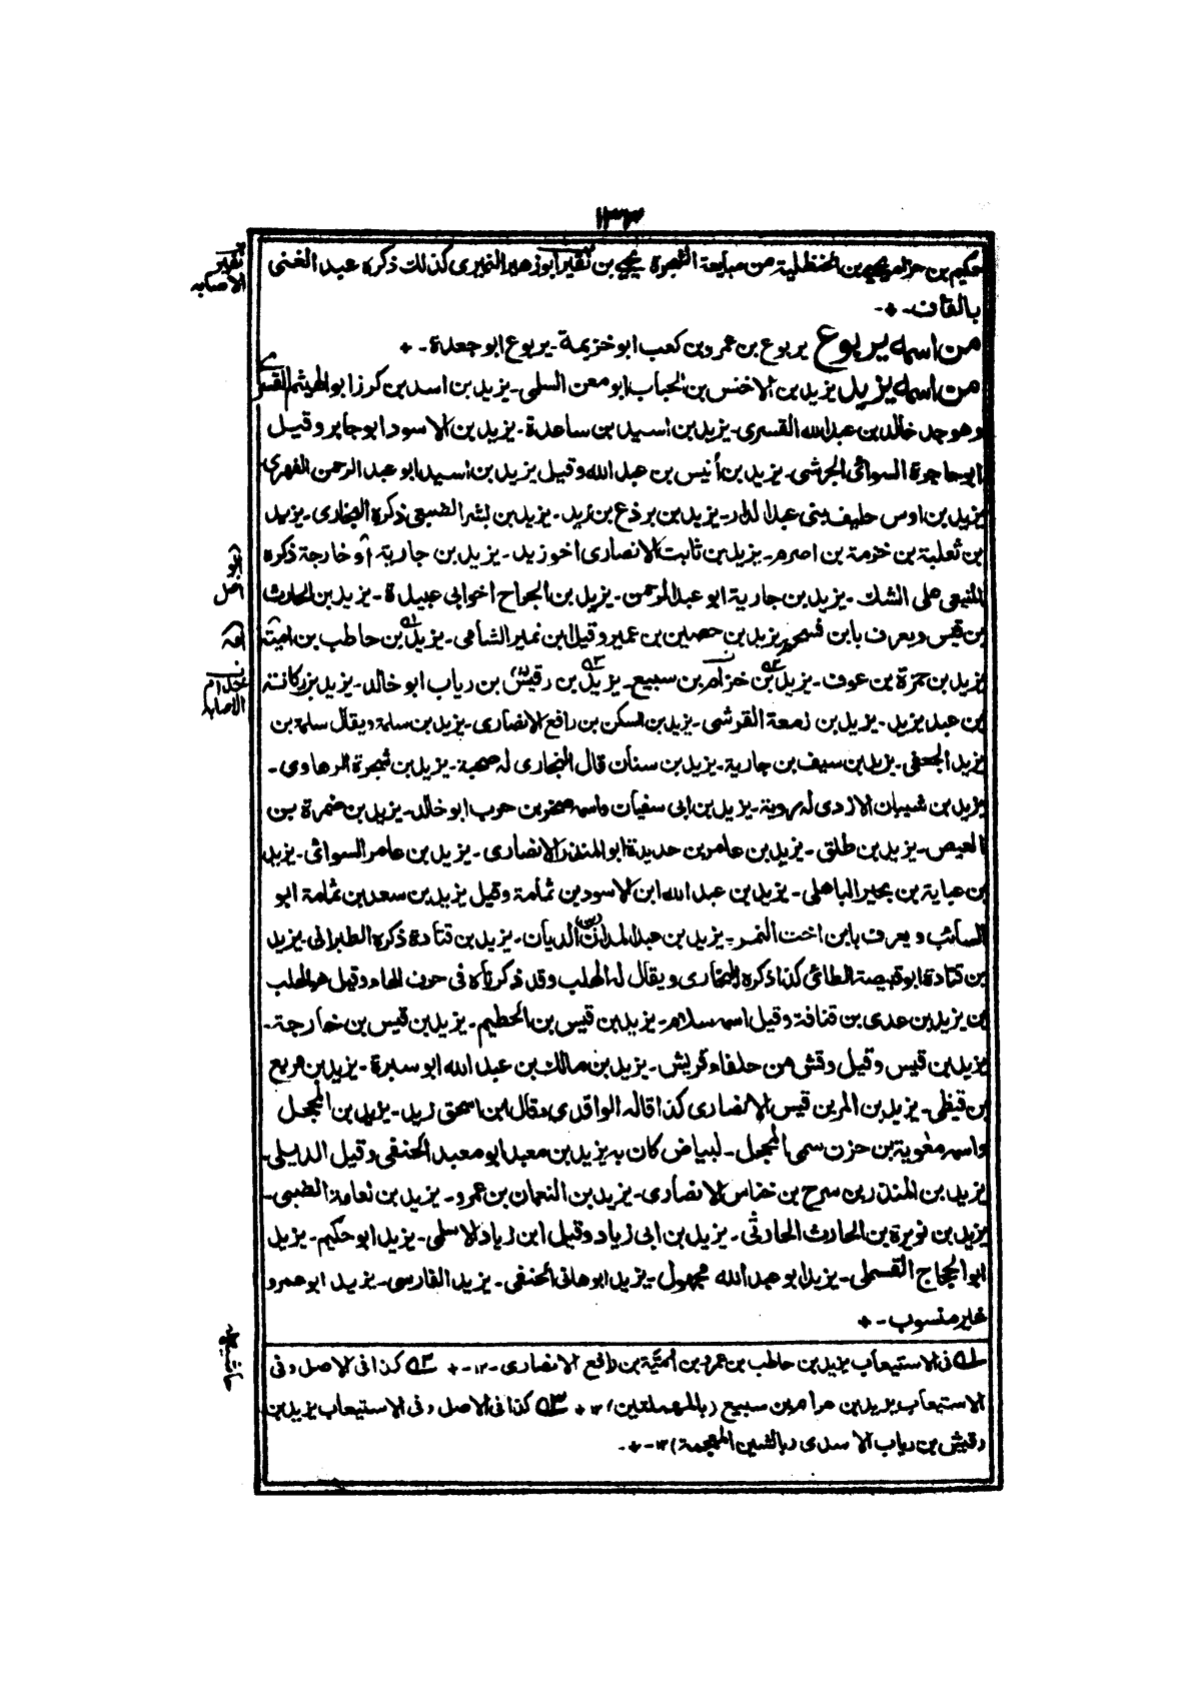 ١٣٣
حكيم بن حزام يحيى بن الحنظلية من مبايعة الشجرة يحيى بن نقير ابو زهير النميرى كذلك ذكره عبد الغنى
بالقاف-٠-
من اسمه يربوع يربوع بن عمرو بن كعب ابو خزيمة- يربوع ابو جعدة-٠
من اسمه يزيد يزيد بن الاخنس بن الحباب ابو معن السلمى- يزيد بن اسد بن كرز ابو الهيثم القسرى
وهو جد خالد بن عبد الله القسرى- يزيد بن اسيد بن ساعدة- يزيد بن الاسود ابو جابر وقيل
ابو حاجزة السوائى الجرشى- يزيد بن أنيس بن عبد الله وقيل يزيد بن اسيد ابو عبد الرحمن الفهرى
يزيد بن اوس حليف بنى عبد الدار- يزيد بن برذع بن زيد- يزيد بن بشر الضبعى ذكره البخارى- يزيد
بن ثعلبة بن خزمة بن اصرم- يزيد بن ثابت الانصارى اخو زيد- يزيد بن جارية أو خارجة ذكره
المنبعى على الشك- يزيد بن جارية ابو عبد الرحمن- يزيد بن الجراح اخو ابى عبيدة- يزيد بن الحارث
بن قيس ويعرف بابن فسحم يزيد بن حصين بن عمير وقيل ابن نمير الشامى- يزيد بن حاطب بن امية
يزيد بن حمزة بن عوف- يزيد بن خزام بن سبيع- يزيد بن رقيش بن رياب ابو خالد- يزيد بن ركانة
بن عبد يزيد- يزيد بن زمعة القرشى- يزيد بن السكن بن رافع الانصارى- يزيد بن سلمة ويقال سلمة بن
يزيد الجعفى- يزيد بن سيف بن جارية- يزيد بن سنان قال البخارى له صحبة- يزيد بن شجرة الرهاوى-
يزيد بن شيبان الازدى له روية- يزيد بن ابى سفيان واسمه صخر بن حرب ابو خالد- يزيد بن ضمرة بن
العيص- يزيد بن طلق- يزيد بن عامر بن حديدة ابو المنذر الانصارى- يزيد بن عامر السوائى- يزيد
بن عباية بن بجير الباهلى- يزيد بن عبد الله ابن الاسود بن ثمامة وقيل يزيد بن سعد بن ثمامة ابو
السائب ويعرف بابن اخت النمر- يزيد بن عبد المدان (بن) الديان- يزيد بن قتادة ذكره الطبرانى- يزيد
بن قتادة ابو قبيصة الطائى كذا ذكره البخارى ويقال له الهلب وقد ذكرناه فى حرف الهاء وقيل هو الهلب
بن يزيد بن عدى بن قنافة وقيل اسمه سلامة- يزيد بن قيس بن الحطيم- يزيد بن قيس بن خارجة-
يزيد بن قيس وقيل وقش من حلفاء قريش- يزيد بن مالك بن عبد الله ابو سبرة- يزيد بن مربع
بن قيظى- يزيد بن المر بن قيس الانصارى كذا قاله الواقدى وقال ابن اسحق زيد- يزيد بن المحجل
واسمه معوية بن حزن سمى المحجل- لبياض كان به يزيد بن معبد ابو معبد الحنفى وقيل الديلى-
يزيد بن المنذر بن سرح بن خناس الانصارى- يزيد بن النعمان بن عمرو- يزيد بن نعامة الضبى-
يزيد بن نويرة بن الحارث الحارثى- يزيد بن ابى زياد وقيل ابن زياد الاسلمى- يزيد ابو حكيم- يزيد
ابو الحجاج القسملى- يزيد ابو عبد الله مجهول- يزيد ابو هانى الحنفى- يزيد الفارسى- يزيد ابو عمرو
غير منسوب-٠
١ فى الاستيعاب يزيد بن حاطب بن عمرو بن أمية بن رافع الانصارى-١٢-٠ ٢ كذا فى الاصل وفى
الاستيعاب يزيد بن حرام بن سبيع (بالمهملتين) ١٢٠ ٣ كذا فى الاصل وفى الاستيعاب يزيد بن
رقيش بن رياب الاسدى (بالشين المعجمة) ١٢-٠-
نقير
الاصابه
ابو
اصل
امة
الاصابه
حاشية